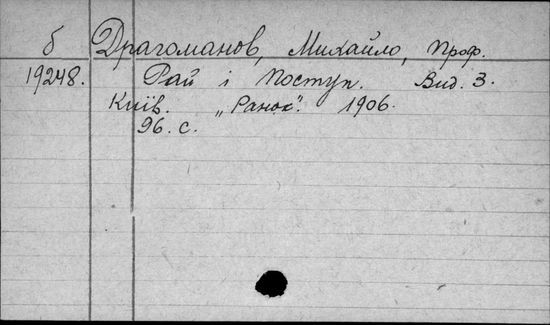 б Драгоманов, Михайло, проф.
19248. Рай і поступ. Вид. 3.
Київ. „Ранок". 1906.
96. с.